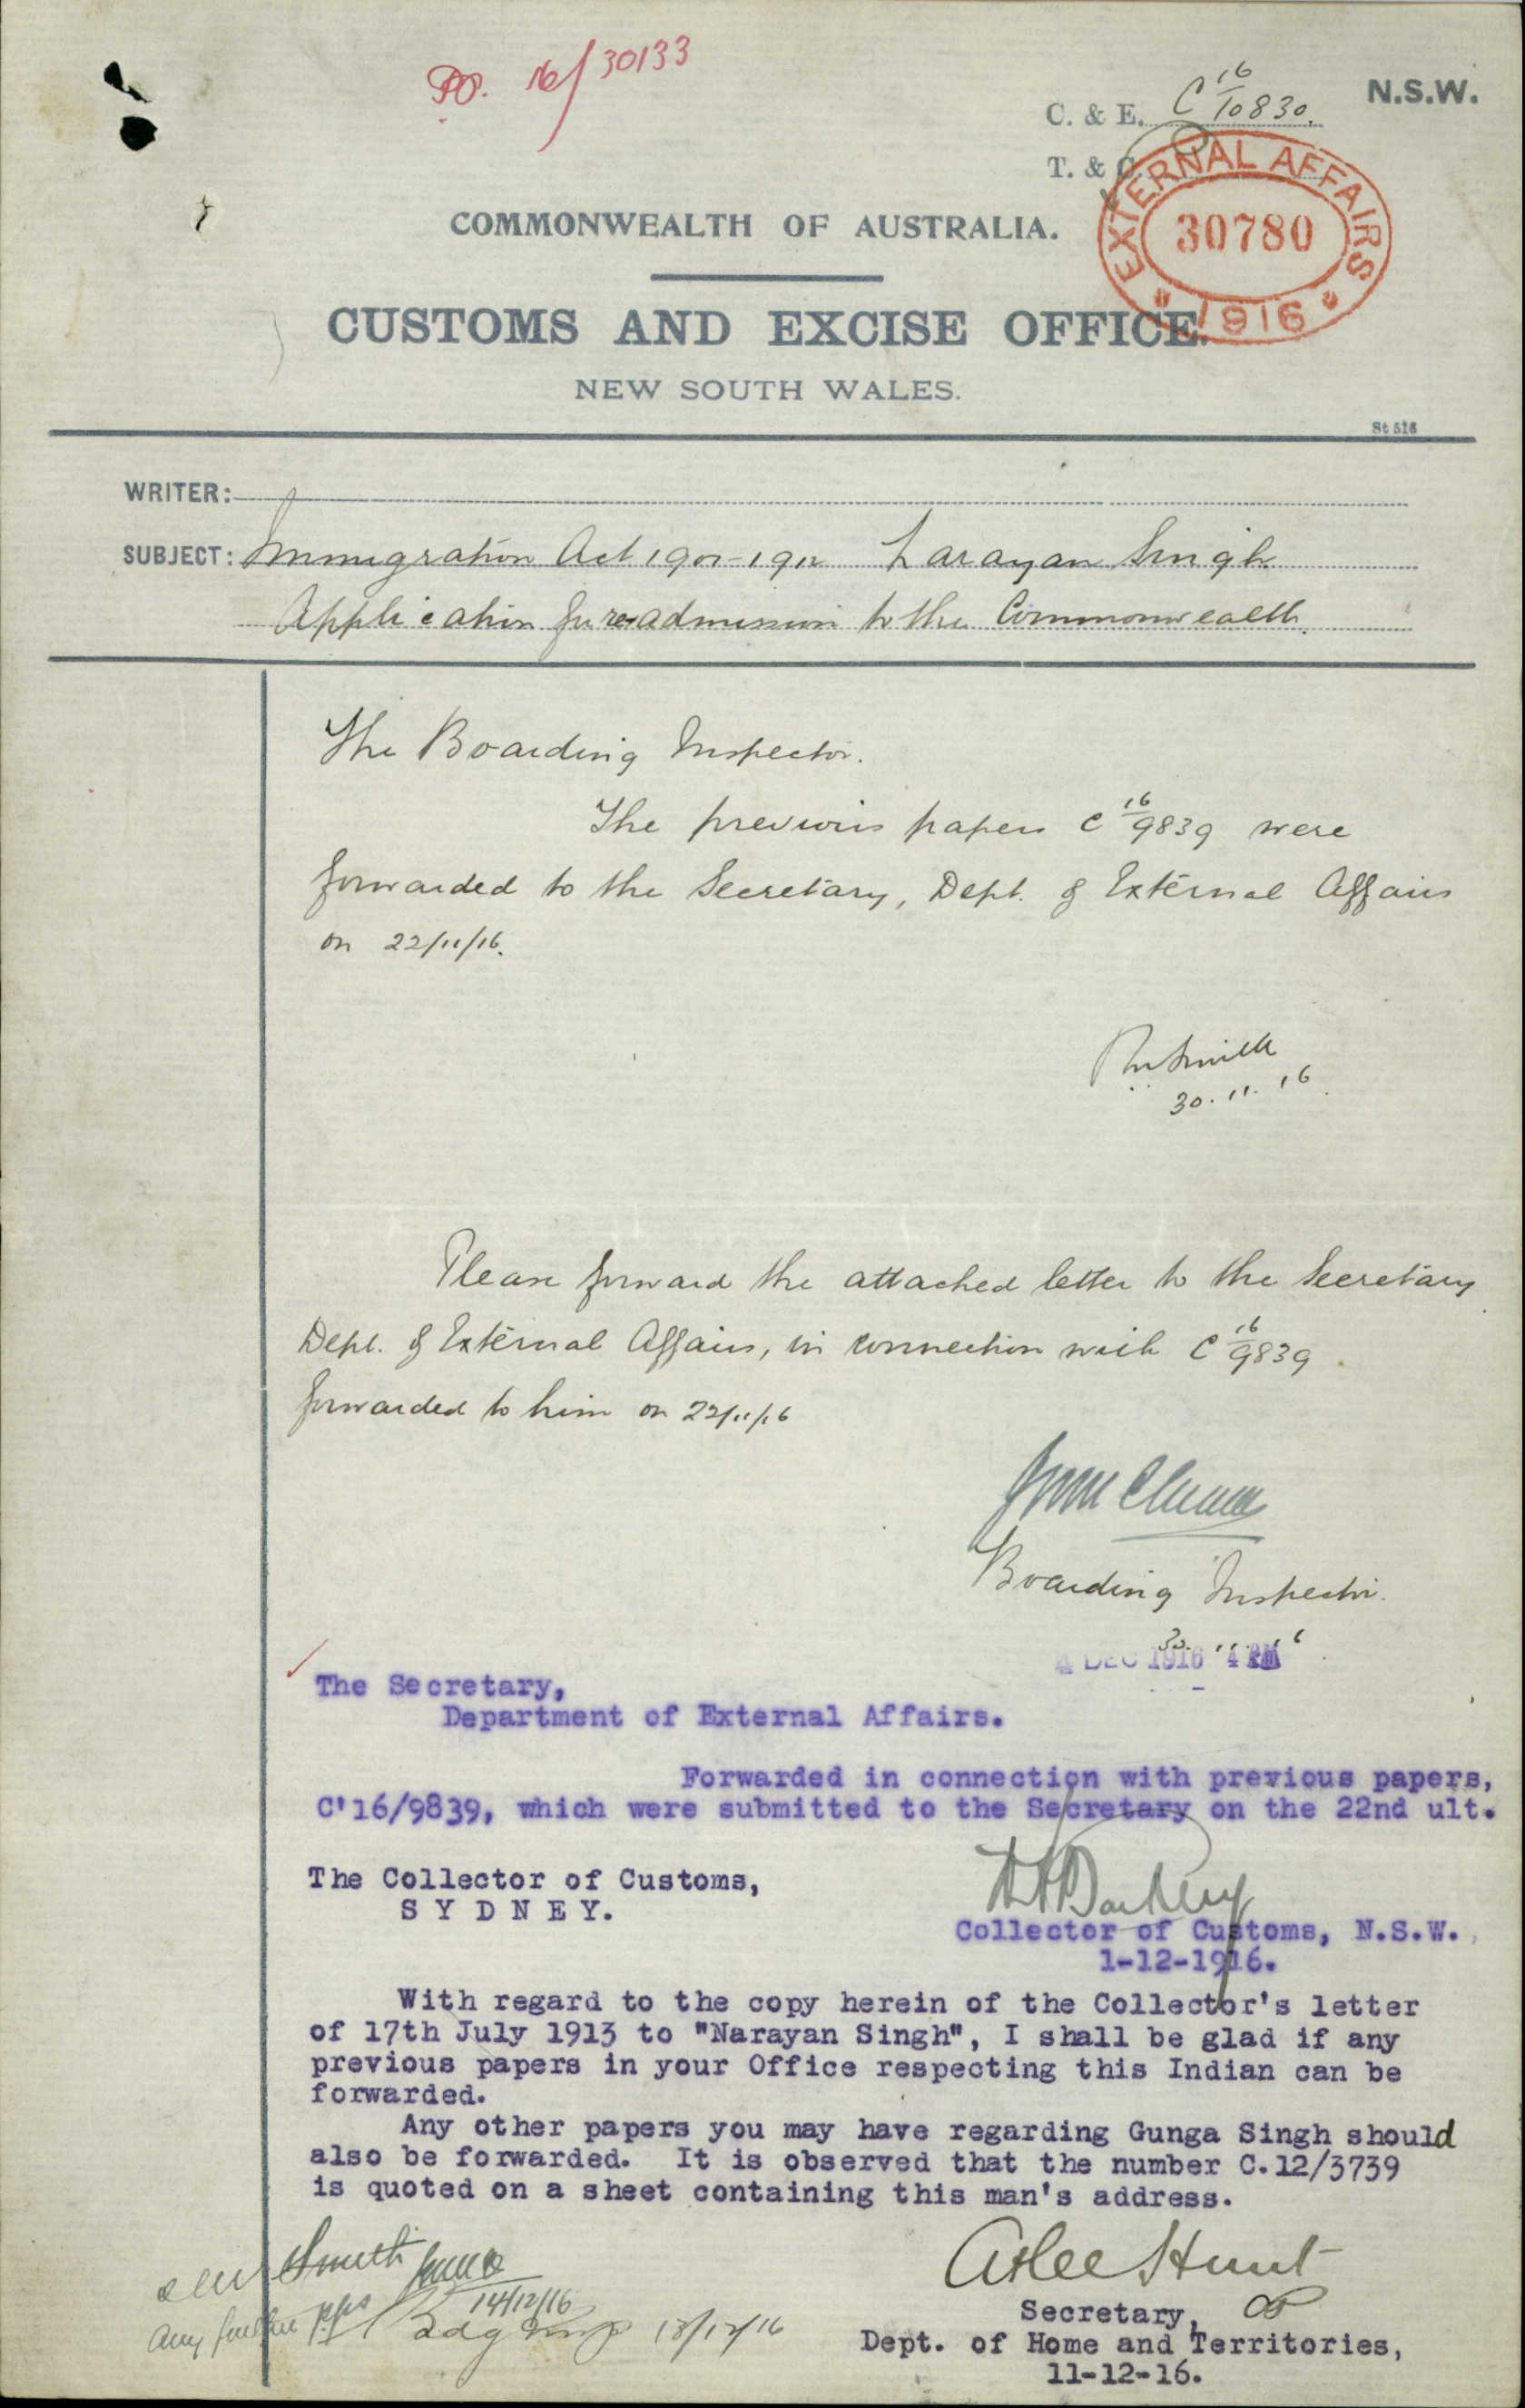 P.O. 16/30133
C. & E. C 16/10830.
N.S.W.
T. & C.
EXTERNAL AFFAIRS
30780
1916
COMMONWEALTH OF AUSTRALIA.
CUSTOMS AND EXCISE OFFICE.
NEW SOUTH WALES.
St 516
WRITER:
SUBJECT: Immigration Act 1901-1912 Narayan Singh
Application for re-admission to the Commonwealth.
The Boarding Inspector.
The previous papers C 16/9839 were
forwarded to the Secretary, Dept. of External Affairs
on 22/11/16.
Smith
30.11.16
Please forward the attached letter to the Secretary
Dept. of External Affairs, in connection with C 16/9839
forwarded to him on 22/11/16
Boarding Inspector.
30.11.16
4 DEC 1916 4 PM
The Secretary,
Department of External Affairs.
Forwarded in connection with previous papers,
C'16/9839, which were submitted to the Secretary on the 22nd ult.
The Collector of Customs,
S Y D N E Y.
Collector of Customs, N.S.W.
1-12-1916.
With regard to the copy herein of the Collector's letter
of 17th July 1913 to "Narayan Singh", I shall be glad if any
previous papers in your Office respecting this Indian can be
forwarded.
Any other papers you may have regarding Gunga Singh should
also be forwarded. It is observed that the number C.12/3739
is quoted on a sheet containing this man's address.
Atlee Hunt
Secretary,
Dept. of Home and Territories,
11-12-16.
Smith
14/12/16
any further pps
18/12/16